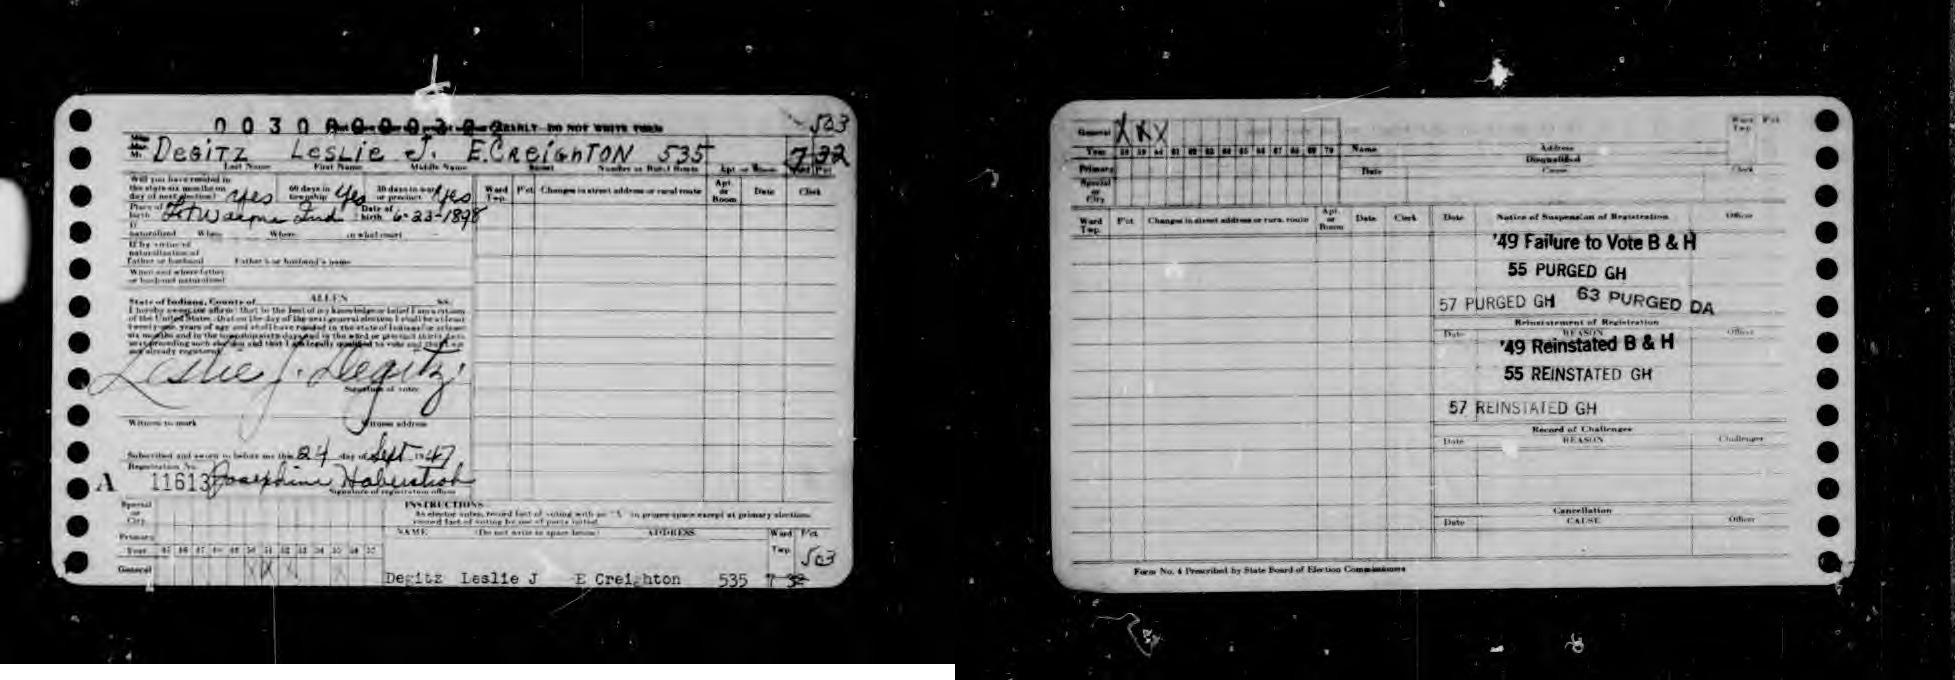 0 0 3 0 0 0 0 0 3 0 2
EARLY - DO NOT WRITE
503
DEGITZ LESLIE J. E. CREIGHTON 535 7 32
Last Name First Name Middle Name Street Number or Rural Route Apt. or Room Ward Pct
Will you have resided in
the state six months on
day of next election? Yes 60 days in township Yes 30 days in ward or precinct Yes
Ward Twp. P'ct Changes in street address or rural route Apt. or Room Date Clerk
Place of birth Ft Wayne Ind Date of birth 6-23-1898
If naturalized When Where in what court
If by virtue of
naturalization of
Father or husband Father's or husband's name
When and where father
or husband naturalized
State of Indiana, County of ALLEN ss.
I hereby swear or affirm that to the best of my knowledge or belief I am a citizen
of the United States; that on the day of the next general election I shall be at least
twenty-one years of age and shall have resided in the state of Indiana for at least
six months and in the township sixty days and in the ward or precinct thirty days
next preceding such election and that I am legally qualified to vote and that I am
not already registered.
Leslie J. Degitz
Signature of voter
Witness to mark Witness address
Subscribed and sworn to before me this 24 day of Sept 1947
Registration No.
A 11613 Josephine Haberstroh
Signature of registration officer
Special or City
Primary
Year 45 46 47 48 49 50 51 52 53 54 55 56 57
General X X X X
INSTRUCTIONS
As elector votes, record fact of voting with an "X" in proper space except at primary elections
record fact of voting by use of party voted.
NAME (Do not write in space below) ADDRESS Ward Twp. P'ct
503
Degitz Leslie J E Creighton 535 7 32
General X X X
Year 58 59 60 61 62 63 64 65 66 67 68 69 70
Primary
Special or City
Name Address
Disqualified
Date Cause Clerk
Ward Twp. P'ct
Ward Twp. P'ct Changes in street address or rural route Apt. or Room Date Clerk
Date Notice of Suspension of Registration Officer
'49 Failure to Vote B & H
55 PURGED GH
57 PURGED GH 63 PURGED DA
Reinstatement of Registration
Date REASON Officer
'49 Reinstated B & H
55 REINSTATED GH
57 REINSTATED GH
Record of Challenges
Date REASON Challenger
Cancellation
Date CAUSE Officer
Form No. 4 Prescribed by State Board of Election Commissioners